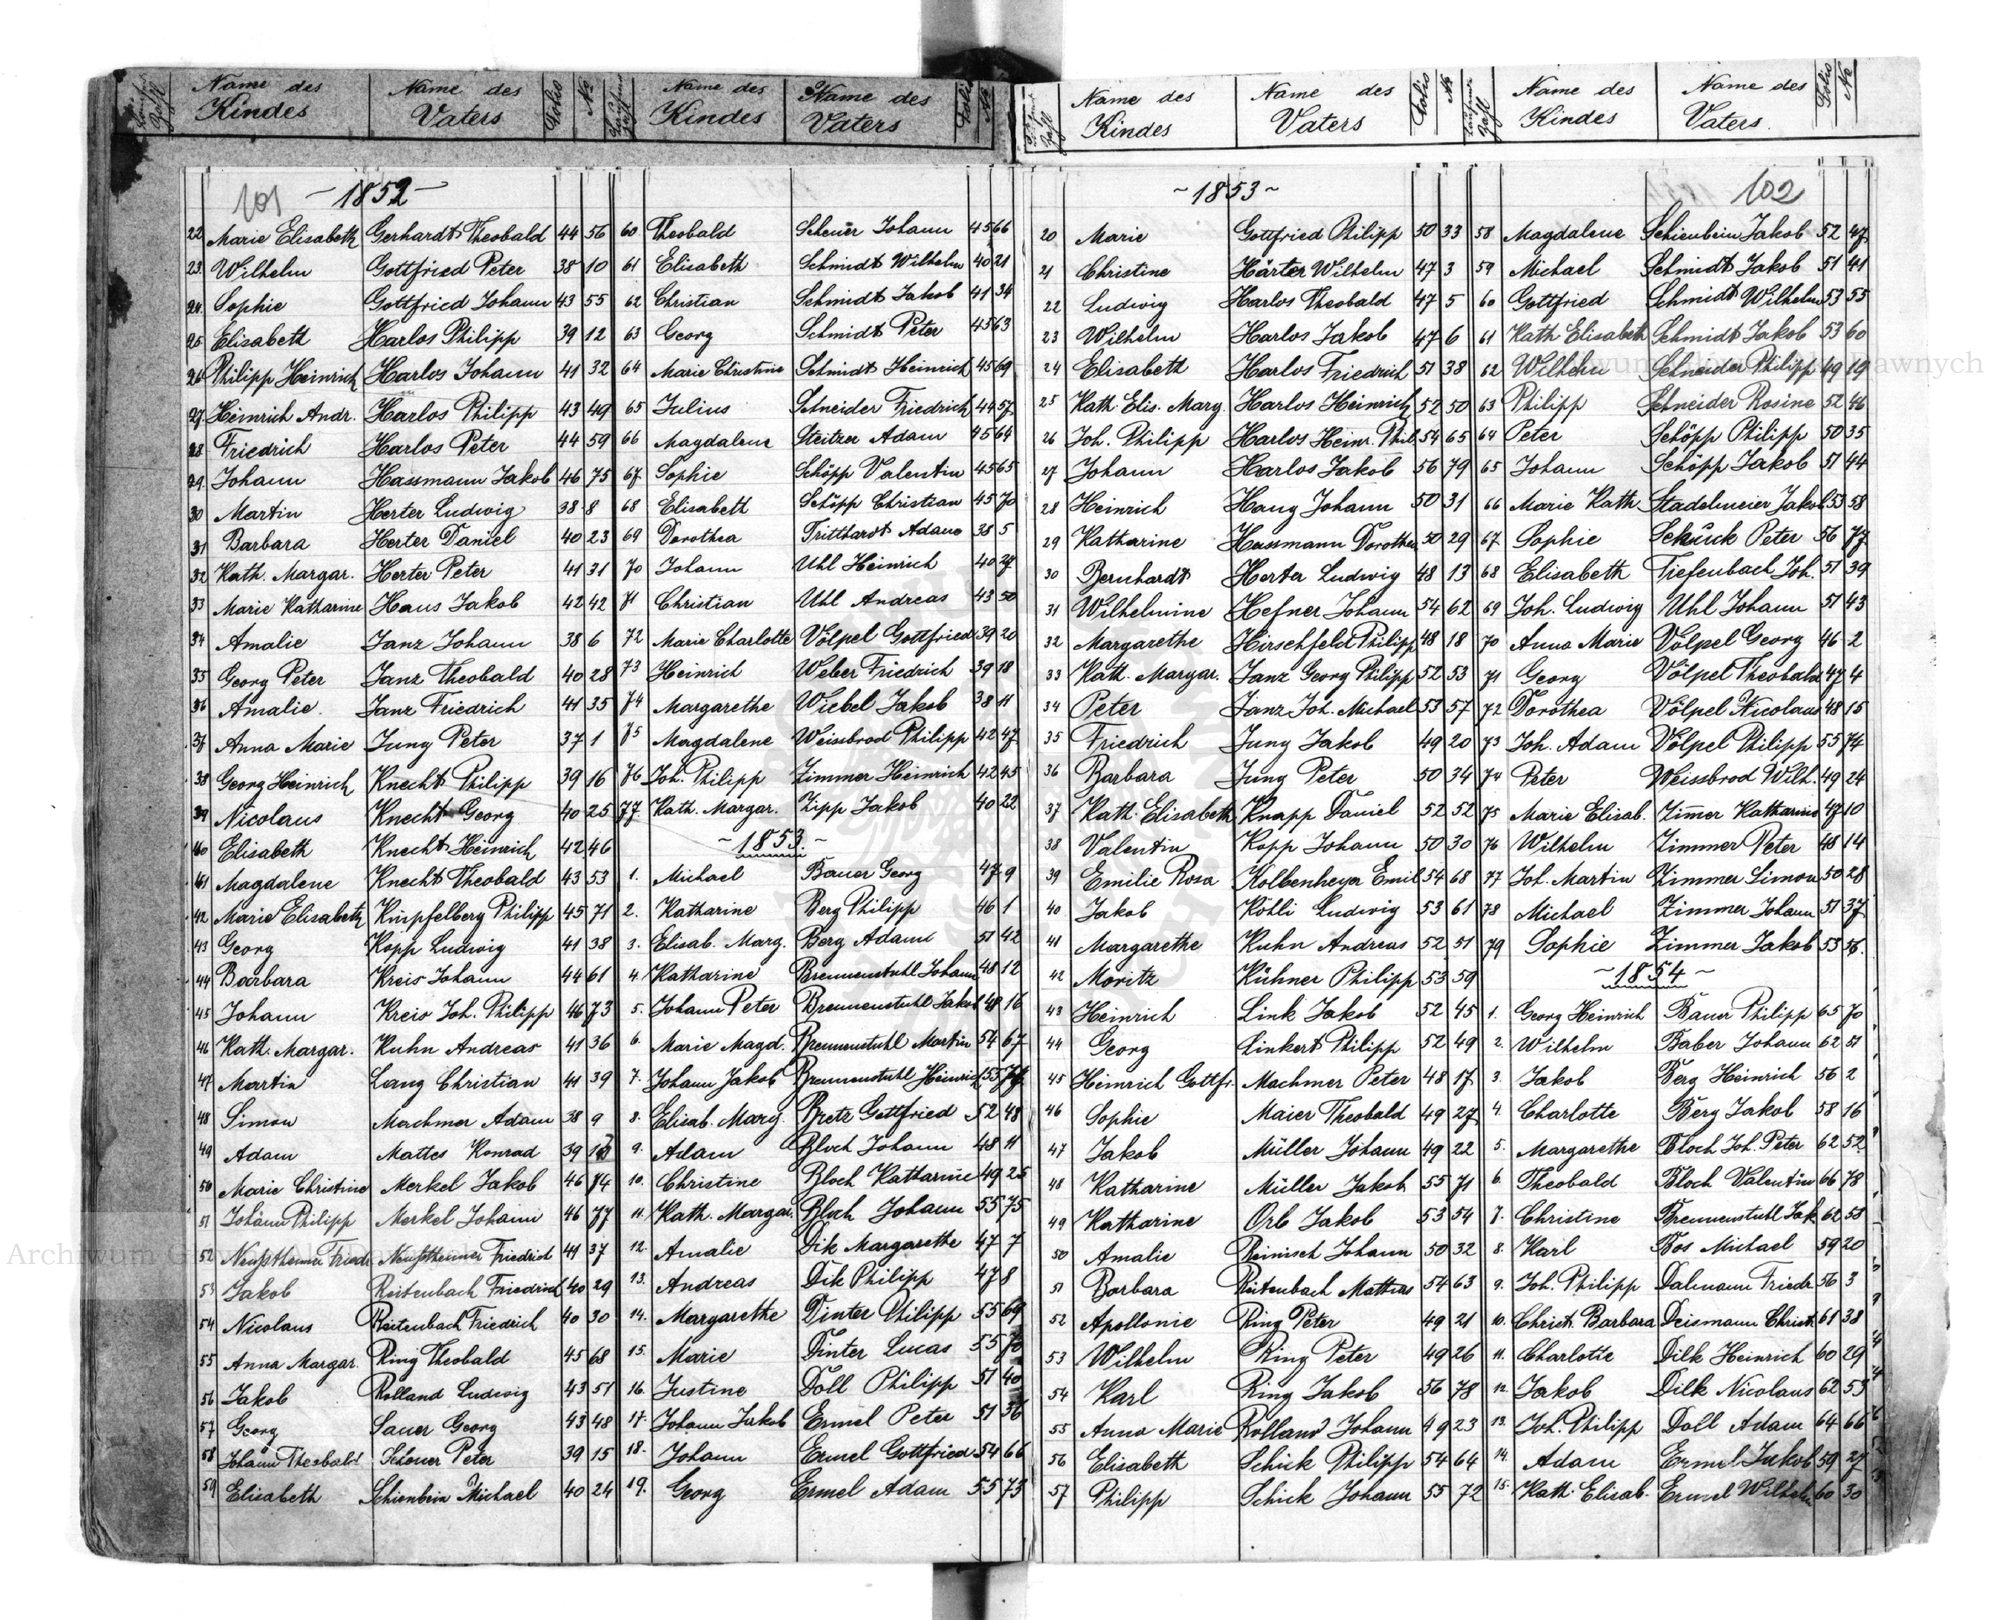 Laufende Zahl Name des Kindes Name des Vaters Folio № Laufende Zahl Name des Kindes Name des Vaters Folio №
101 ~1852~
22 Marie Elisabeth Gerhardt Theobald 44 56
23. Wilhelm Gottfried Peter 38 10
24. Sophie Gottfried Johann 43 55
25. Elisabeth Harlos Philipp 39 12
26 Philipp Heinrich Harlos Johann 41 32
27. Heinrich Andr. Harlos Philipp 43 49
28 Friedrich Harlos Peter 44 59
29. Johann Hassmann Jakob 46 75
30 Martin Herter Ludwig 38 8
31 Barbara Herter Daniel 40 23
32 Kath. Margar. Herter Peter 41 31
33 Marie Katharine Haus Jakob 42 42
34 Amalie Janz Johann 38 6
35 Georg Peter Janz Theobald 40 28
36 Amalie. Janz Friedrich 41 35
37 Anna Marie Jung Peter 37 1
38 Georg Heinrich Knecht Philipp 39 16
39 Nicolaus Knecht Georg 40 25
40 Elisabeth Knecht Heinrich 42 46
41 Magdalene Knecht Theobald 43 53
42 Marie Elisabeth Knipfelberg Philipp 45 71
43 Georg Kopp Ludwig 41 38
44 Barbara Kreis Johann 44 61
45 Johann Kreis Joh. Philipp 46 73
46 Kath. Margar. Kuhn Andreas 41 36
47 Martin Lang Christian 41 39
48 Simon Machmer Adam 38 9
49 Adam Mattes Konrad 39
50 Marie Christine Merkel Jakob 46 74
51 Johann Philipp Merkel Johann 46 77
52 Friedr. Friedrich 41 37
53 Jakob Reitenbach Friedrich 40 29
54 Nicolaus Reitenbach Friedrich 40 30
55 Anna Margar. Ring Theobald 45 68
56 Jakob Rolland Ludwig 43 51
57 Georg Sauer Georg 43 48
58 Johann Theobald Scheuer Peter 39 15
59 Elisabeth Schienbein Michael 40 24
60 Theobald Scheuer Johann 45 66
61 Elisabeth Schmidt Wilhelm 40 21
62 Christian Schmidt Jakob 41 34
63 Georg Schmidt Peter 45 63
64 Marie Christine Schmidt Heinrich 45 69
65 Julius Schneider Friedrich 44 57
66 Magdalena Steitzer Adam 45 64
67. Sophie Schöpp Valentin 45 65
68 Elisabeth Schöpp Christian 45 70
69 Dorothea Tritthardt Adam 38 5
70 Johann Uhl Heinrich 40 27
71 Christian Uhl Andreas 43 50
72 Marie Charlotte Völpel Gottfried 39 20
73 Heinrich Weber Friedrich 39 18
74 Margarethe Wiebel Jakob 38 11
75 Magdalene Weissbrod Philipp 42 47
76 Joh. Philipp Zimmer Heinrich 42 45
77 Kath. Margar. Zipp Jakob 40 22
~1853.~
1. Michael Bauer Georg 47 9
2. Katharine Berg Philipp 46 1
3. Elisab. Marg. Berg Adam 51 42
4. Katharine Brennenstuhl Johann 48 12
5. Johann Peter Brennenstuhl Jakob 48 16
6. Marie Magd. Brennenstuhl Martin 54 67
7. Johann Jakob Brennenstuhl Heinrich 55
8. Elisab. Marg. Bretz Gottfried 52 48
9. Adam Bloch Johann 48 11
10. Christine Bloch Katharine 49 25
11. Kath. Margar. Bloch Johann 55 75
12. Amalie Dik Margarethe 47 7
13. Andreas Dik Philipp 47 8
14. Margarethe Dinter Philipp 55 69
15. Marie Dinter Lucas 55 70
16. Justine Döll Philipp 51 40
17. Johann Jakob Ermel Peter 51 36
18. Johann Ermel Gottfried 54 66
19. Georg Ermel Adam 55 73
Laufende Zahl Name des Kindes Name des Vaters Folio № Laufende Zahl Name des Kindes Name des Vaters. Folio №
~1853~ 102
20 Marie Gottfried Philipp 50 33
21 Christine Härter Wilhelm 47 3
22 Ludwig Harlos Theobald 47 5
23 Wilhelm Harlos Jakob 47 6
24 Elisabeth Harlos Friedrich 51 38
25 Kath. Elis. Marg. Harlos Heinrich 52 50
26 Joh. Philipp Harlos Heinr. Phil. 54 65
27 Johann Harlos Jakob 56 79
28 Heinrich Haug Johann 50 31
29 Katharine Hassmann Dorothea 50 29
30 Bernhardt Herter Ludwig 48 13
31 Wilhelmine Hefner Johann 54 62
32 Margarethe Hirschfeld Philipp 48 18
33 Kath. Margar. Janz Georg Philipp 52 53
34 Peter Janz Joh. Michael 53 57
35 Friedrich Jung Jakob 49 20
36 Barbara Jung Peter 50 34
37 Kath. Elisabeth Knapp Daniel 52 52
38 Valentin Kopp Johann 50 30
39 Emilie Rosa Kolbenheyer Emil 54 68
40 Jakob Köhli Ludwig 53 61
41 Margarethe Kuhn Andreas 52 51
42 Moritz Kühner Philipp 53 59
43 Heinrich Link Jakob 52 45
44 Georg Linkert Philipp 52 49
45 Heinrich Gottfr. Machmer Peter 48 17
46 Sophie Maier Theobald 49 27
47 Jakob Müller Johann 49 22
48 Katharine Müller Jakob 55 71
49 Katharine Orb Jakob 53 54
50 Amalie Reinisch Johann 50 32
51 Barbara Reitenbach Mathias 54 63
52 Apollonie Ring Peter 49 21
53 Wilhelm Ring Peter 49 26
54 Karl Ring Jakob 56 78
55 Anna Marie Rolland Johann 49 23
56 Elisabeth Schick Philipp 54 64
57 Philipp Schick Johann 55 72
58 Magdalene Schienbein Jakob 52 47
59 Michael Schmidt Jakob 51 41
60 Gottfried Schmidt Wilhelm 53 55
61 Kath. Elisabeth Schmidt Jakob 53 60
62 Wilhelm Schneider Philipp 49 19
63 Philipp Schneider Rosine 52 46
64 Peter Schöpp Philipp 50 35
65 Johann Schöpp Jakob 51 44
66 Marie Kath. Stadelmeier Jakob 53 58
67. Sophie Peter 56 77
68 Elisabeth Tiefenbach Joh. 51 39
69 Joh. Ludwig Uhl Johann 51 43
70 Anna Marie Völpel Georg 46 2
71 Georg Völpel Theobald 47 4
72 Dorothea Völpel Nicolaus 48 15
73 Joh. Adam Völpel Philipp 55 74
74 Peter Weissbrod Wilh. 49 24
75 Marie Elisab. Zimer Katharine 47 10
76 Wilhelm Zimmer Peter 48 14
77 Joh. Martin Zimmer Simon 50 28
78 Michael Zimmer Johann 51 37
79 Sophie Zimmer Jakob 53 56.
~1854~
1. Georg Heinrich Bauer Philipp 65 70
2. Wilhelm Baber Johann 62 51
3. Jakob Berg Heinrich 56 2
4. Charlotte Berg Jakob 58 16
5. Margarethe Bloch Joh. Peter 62 52
6. Theobald Bloch Valentin 66 78
7. Christine Brennenstuhl Jak. 62 58
8. Karl Bos Michael 59 20
9. Joh. Philipp Dalmann Friedr. 56 3
10. Christ. Barbara Deismann Christ. 61 38
11. Charlotte Dilk Heinrich 60 29
12. Jakob Dilk Nicolaus 62 53
13. Joh. Philipp Doll Adam 64 66
14. Adam Ermel Jakob 59 27
15. Kath. Elisab. Ermel Wilhelm 60 30